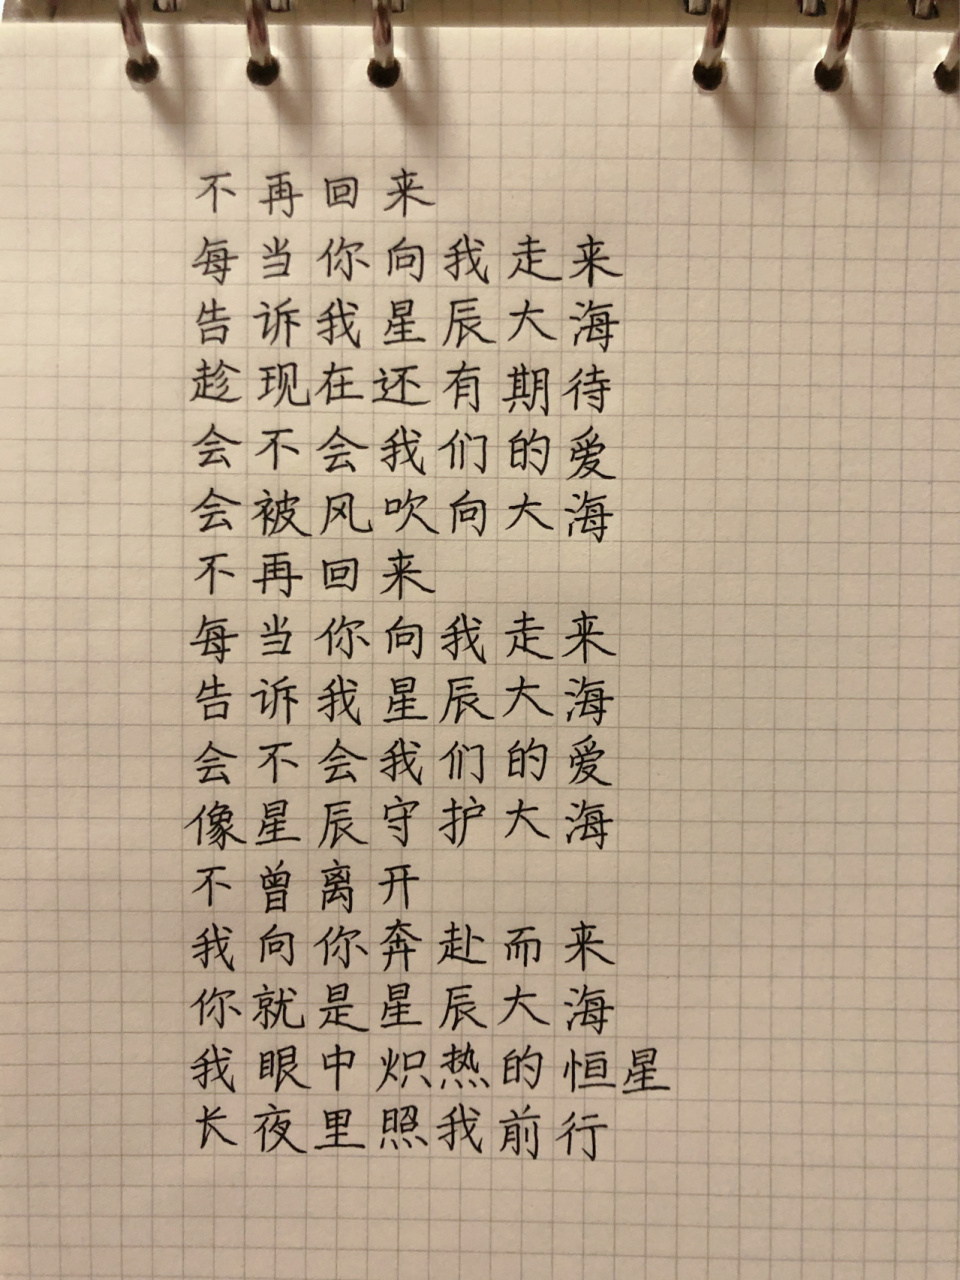 不再回来
每当你向我走来
告诉我星辰大海
趁现在还有期待
会不会我们的爱
会被风吹向大海
不再回来
每当你向我走来
告诉我星辰大海
会不会我们的爱
像星辰守护大海
不曾离开
我向你奔赴而来
你就是星辰大海
我眼中炽热的恒星
长夜里照我前行